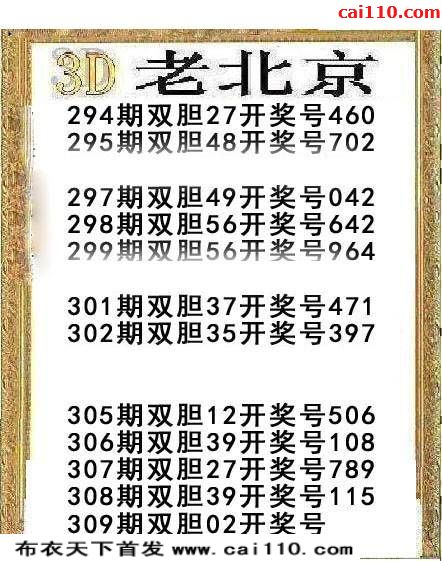 cai110.com
3D 老北京
294期双胆27开奖号460
295期双胆48开奖号702
297期双胆49开奖号042
298期双胆56开奖号642
299期双胆56开奖号964
301期双胆37开奖号471
302期双胆35开奖号397
305期双胆12开奖号506
306期双胆39开奖号108
307期双胆27开奖号789
308期双胆39开奖号115
309期双胆02开奖号
布衣天下首发 www.cai110.com